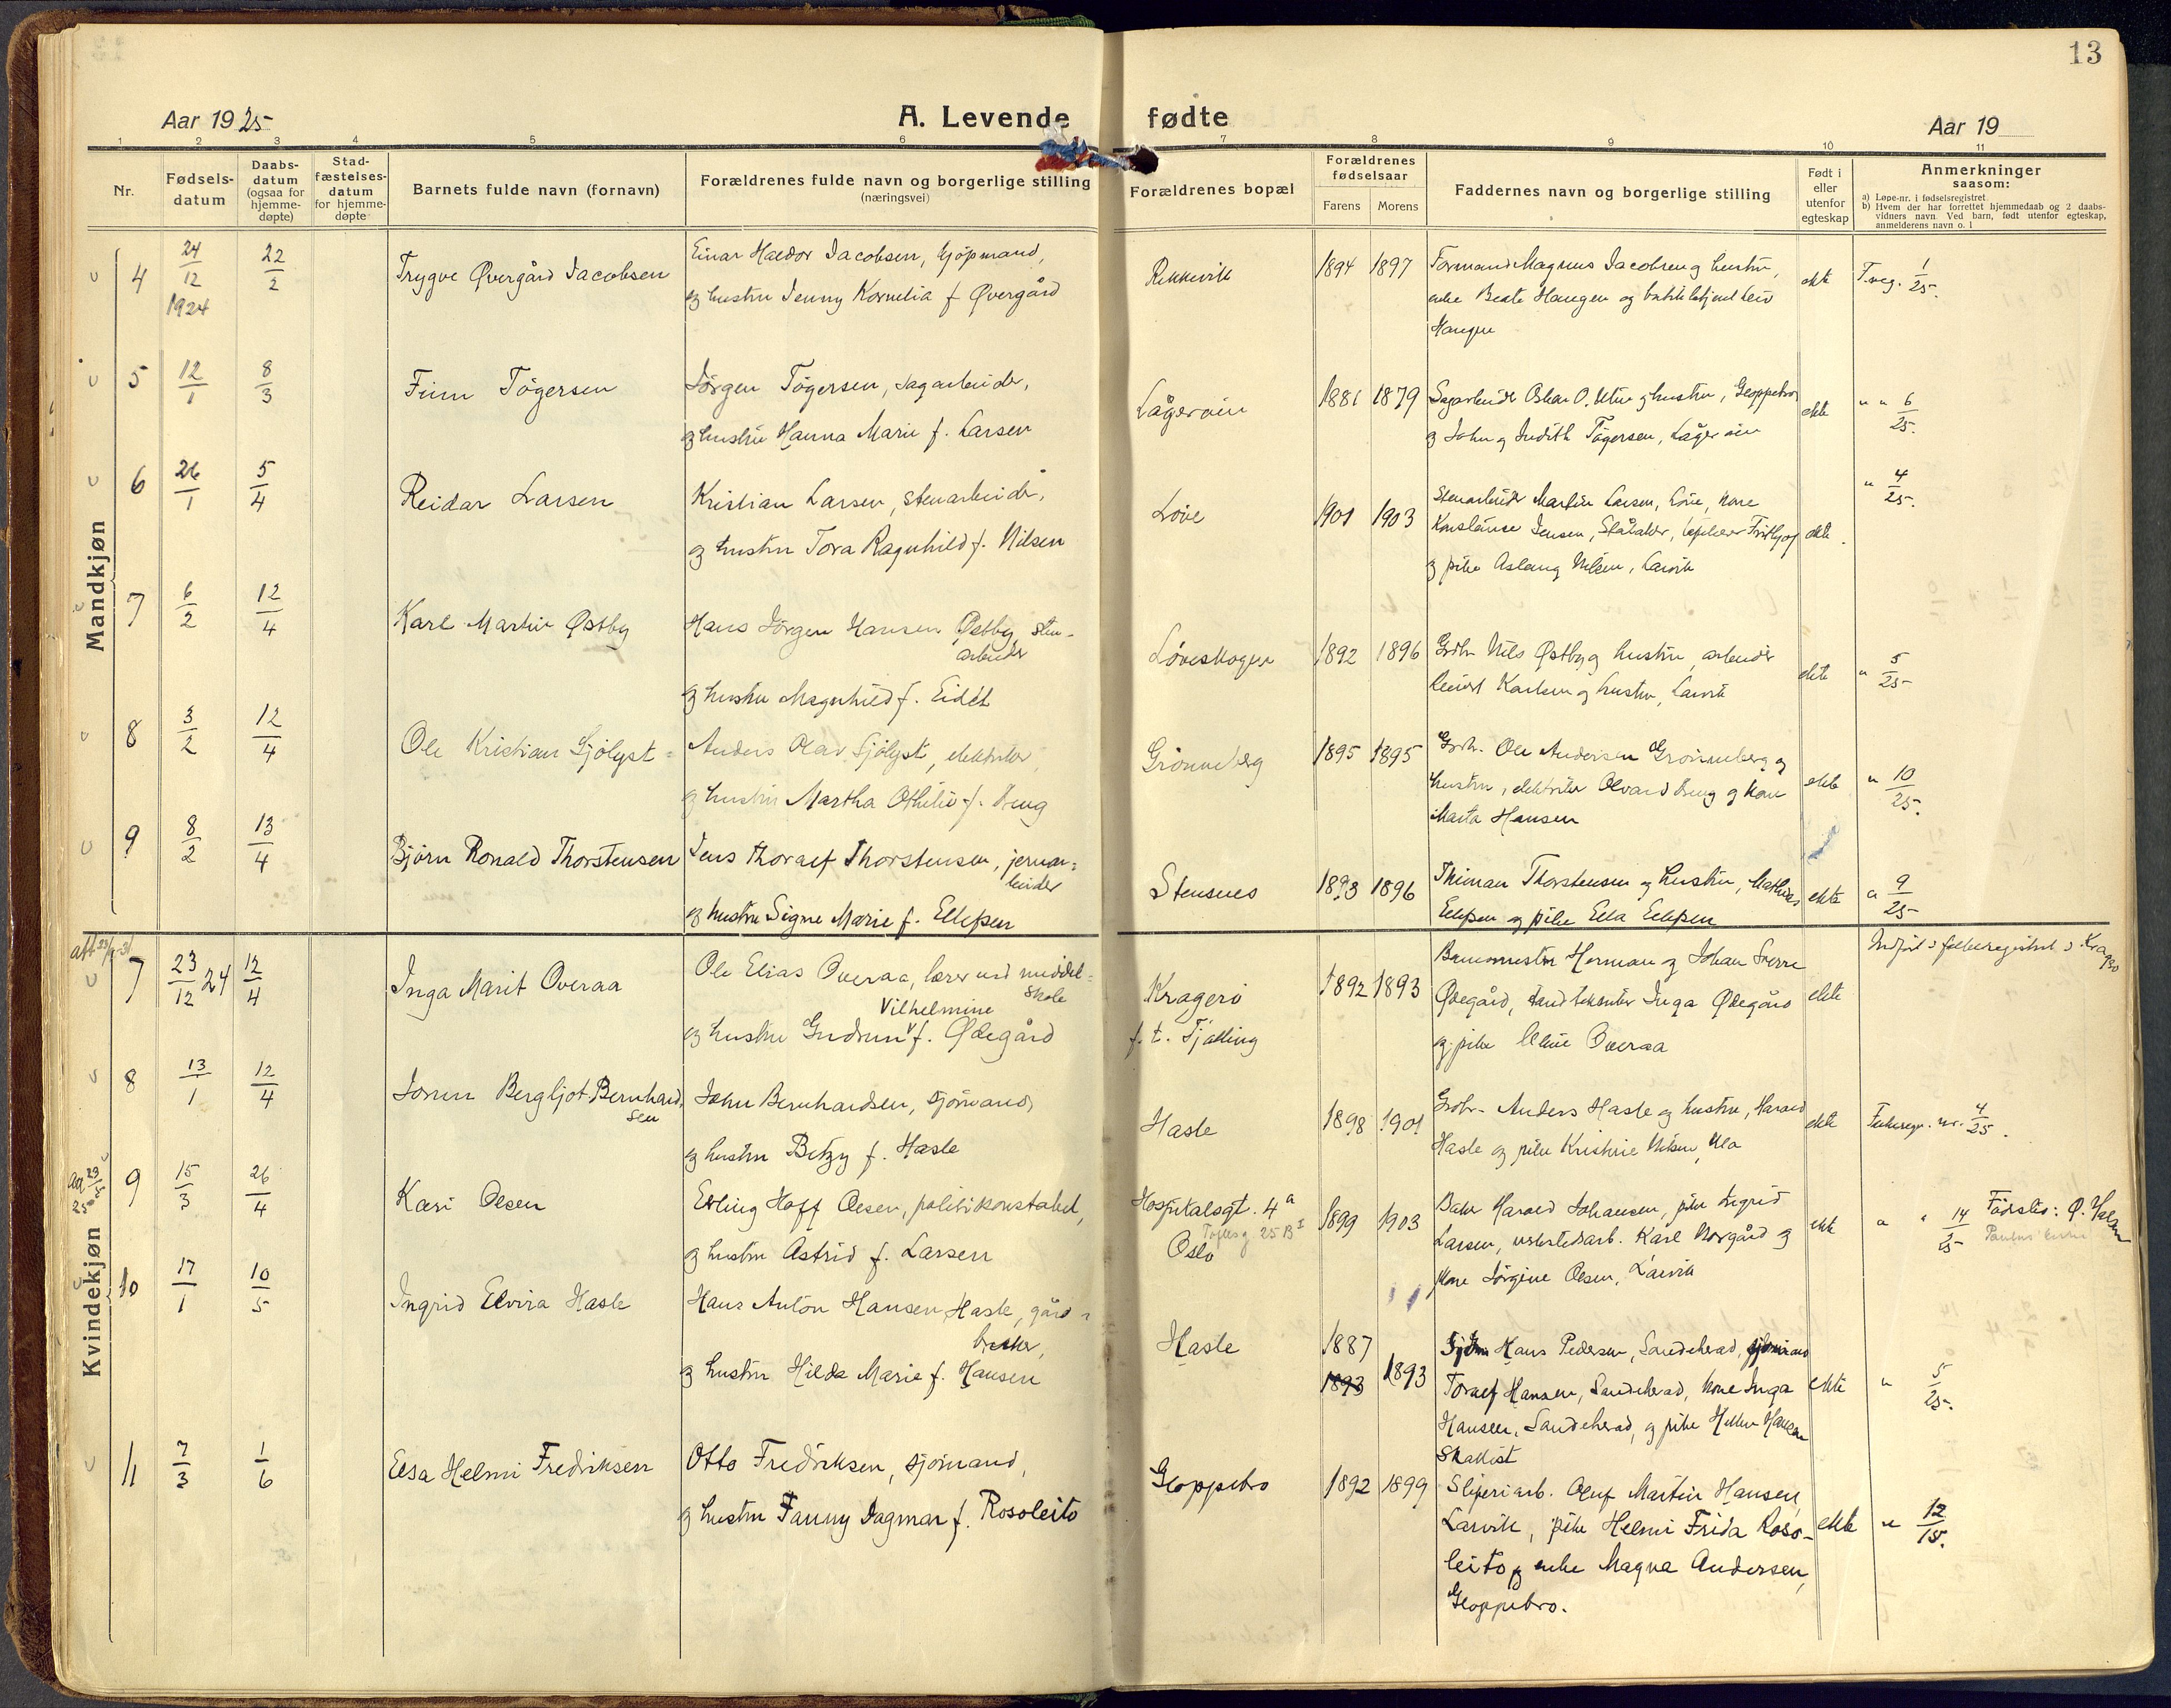 13
Aar 1925
A. Levende fødte
Aar 19
1 2 3 4 5 6 7 8 9 10 11
Nr.
Fødsels-
datum
Daabs-
datum
(ogsaa for
hjemme-
døpte)
Stad-
fæstelses-
datum
for hjemme-
døpte
Barnets fulde navn (fornavn)
Forældrenes fulde navn og borgerlige stilling
(næringsvei)
Forældrenes bopæl
Forældrenes
fødselsaar
Farens Morens
Faddernes navn og borgerlige stilling
Født i
eller
utenfor
egteskap
Anmerkninger
saasom:
a) Løpe-nr. i fødselsregistret.
b) Hvem der har forrettet hjemmedaab og 2 daabs-
vidners navn. Ved barn, født utenfor egteskap,
anmelderens navn o. l
Mandkjøn
4
24/12
1924
22/2
Trygve Øvergård Jacobsen
Einar Haldor Jacobsen, kjöpmand,
og hustru Jenny Kornelia f. Övergård
Rekkevik
1894 1897
Formand Magnus Jacobsen og hustru,
enke Beate Haugen og
Haugen
ekte
F.reg. 1/25.
5
12/1
8/3
Finn Tögersen
Jörgen Tögersen, sagarbeider,
og hustru Hanna Marie f. Larsen
Lågeröien
1881 1879
Sagarbeider Oskar O. og hustru, Gloppebro
og John og Judith Tögersen, Lågeröien
ekte
" " 6/25.
6
26/1
5/4
Reidar Larsen
Kristian Larsen, stenarbeider,
og hustru Tora Ragnhild f. Nilsen
Löve
1901 1903
Stenarbeider Martin Larsen, Löve, kone
Konstanse Jensen, Fridtjof
og pike Aslaug Nilsen, Larvik
ekte
" 4/25.
7
6/2
12/4
Karl Martin Østby
Hans Jörgen Hansen Østby, sten-
arbeider
og hustru Magnhild f. Eidet
Löveskogen
1892 1896
Grdbr. Nils Østby og hustru, arbeider
Karlsen og hustru, Larvik
ekte
" 5/25
8
3/2
12/4
Ole Kristian Sjölyst
Anders Olav Sjölyst, elektriker,
og hustru Martha Othilie f.
Grönneberg
1895 1895
Grdbr. Ole Andersen Grönneberg og
hustru, elektriker og kone
Marta Hansen
ekte
" 10/25.
9
8/2
13/4
Björn Ronald Thorstensen
Jens Thoralf Thorstensen, jernar-
beider
og hustru Signe Marie f. Ellefsen
Stensnes
1893 1896
Thorstensen og hustru, Mathias
Ellefsen og pike Ella Ellefsen
ekte
" 9/25
Kvindekjøn
7
23/12 24
12/4
Inga Marit Överaa
Ole Elias Överaa, lærer ved middel-
skole
Vilhelmine
og hustru Gudrun f. Ødegård
Kragerö
f. t. Tjölling
1892 1893
Herman og Johan Sverre
Ødegård, Inga Ødegård
og pike Överaa
ekte
Indfört i fødselsregistret i Kragerö
8
13/1
12/4
Jorun Bergljot Bernhard-
sen
John Bernhardsen, sjömand,
og hustru Betzy f. Hasle
Hasle
1898 1901
Grdbr. Anders Hasle og hustru, Harald
Hasle og pike Kristine Nilsen, Ula
ekte
nr. 4/25.
9
15/3
26/4
Kari Olsen
Erling Hoff Olsen, politikonstabel,
og hustru Astrid f. Larsen
Hospitalsgt. 4a
Oslo
1899 1903
Baker Harald Johansen, pike Ingrid
Larsen, verkstedarb. Karl Norgård og
kone Jörgine Olsen, Larvik
ekte
" " 14/25
Födested: Ö. Halsen
10
17/1
10/5
Ingrid Elvira Hasle
Hans Anton Hansen Hasle, gård-
bruker,
og hustru Hilda Marie f. Hansen
Hasle
1887
1893 1893
Hans Pedersen, Sandeherad, sjömand
Toralf Hansen, Sandeherad, kone Inga
Hansen, Sandeherad, og pike Hansen
Skallist
ekte
" 5/25.
11
7/3
1/6
Elsa Helmi Fredriksen
Otto Fredriksen, sjömand,
og hustru Fanny Dagmar f. Rosoleito
Gloppebro
1892 1899
Sliperiarb. Oluf Martin Hansen,
Larvik, pike Helmi Frida Roso-
leito og enke Magna Andersen,
Gloppebro.
ekte
" 12/15.